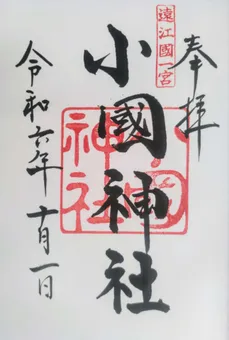 奉拝
遠江國一宮
小國神社
小國神社
令和六年十月一日